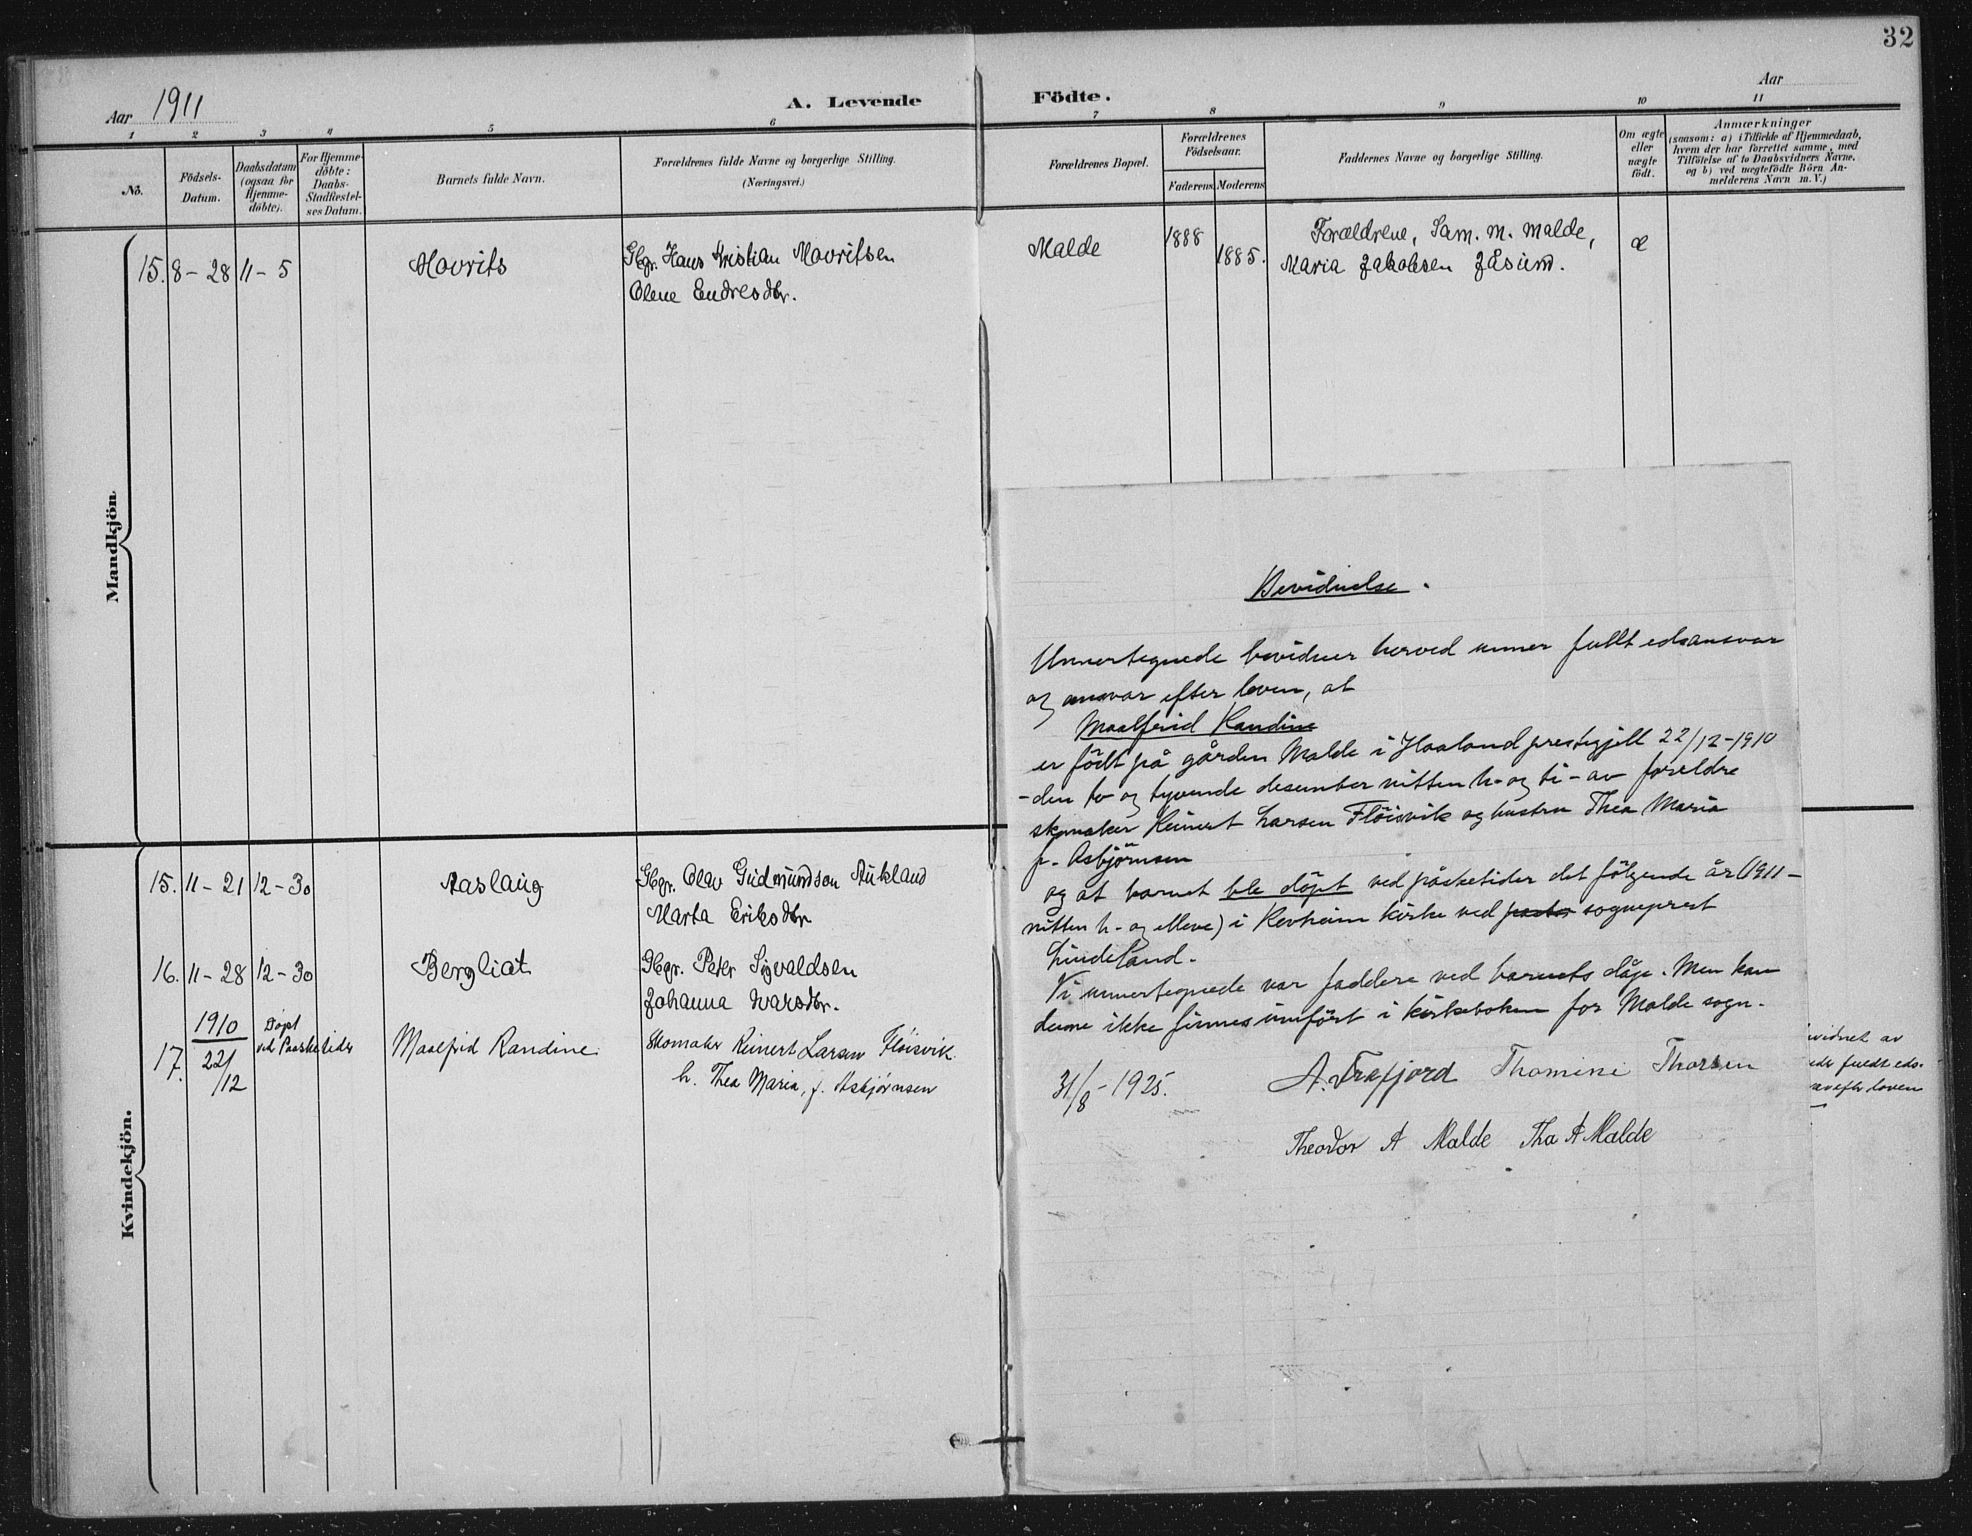 32
Aar 1911
A. Levende Födte.
Aar
1 2 3 4 5 6 7 8 9 10 11
No.
Födsels-Datum.
Daabsdatum (ogsaa for Hjemme-döbte).
For Hjemme-döbte: Daabs-Stadfæstel-ses Datum.
Barnets fulde Navn.
Forældrenes fulde Navne og borgerlige Stilling.
(Næringsvei.)
Forældrenes Bopæl.
Forældrenes Födselsaar.
Faderens Moderens
Faddernes Navne og borgerlige Stilling.
Om ægte eller uægte født.
Anmærkninger
(saasom: a) i Tilfælde af Hjemmedaab,
hvem der har forrettet samme, med
Tilföielse af to Daabsvidners Navne.
og b) ved uægtefödte Börn An-
melderens Navn m. V.)
Mandkjön.
15. 8-28 11-5 Movrits Gbr. Hans Kristian Movritsen Malde 1888 1885. Forældrene, Sam. M. Malde, æ
Olene Endresdtr. Maria Jakobsen Jåsund.
Kvindekjön.
15. 11-21 12-30 Aaslaug Gbr. Olav Gudmundson Aukland
Marta Eriksdtr.
16. 11-28 12-30 Bergliot Gbr. Peter Sigvaldsen
Johanna Ivarsdtr.
17. 1910 22/12 Døpt ved Paasketider Maalfrid Randine Skomaker Reinert Larsen Fløisvik
h. Thea Maria, f. Asbjørnsen
Bevidnelse.
Unnertegnede bevidner herved unner fullt edsansvar
og ansvar efter loven, at
Maalfrid Randine
er født på gården Malde i Haaland prestegjell 22/12-1910
- den to og tyvende desember nitten h- og ti - av foreldre
skomaker Reinert Larsen Flöisvik og hustru Thea Maria
f. Asbjörnsen
og at barnet ble döpt ved påsketider det fölgende år (1911 -
nitten h- og elleve) i Revheim kirke ved sogneprest
Lindeland.
Vi unnertegnede var faddere ved barnets dåp. Men kan
denne ikke finnes innfört i kirkeboken for Malde sogn.
31/8-1925. A. Frafjord Thomine Thorsen
Theodor A Malde Tha A Malde
vidnet av
nder fuldt eds-
var efter loven